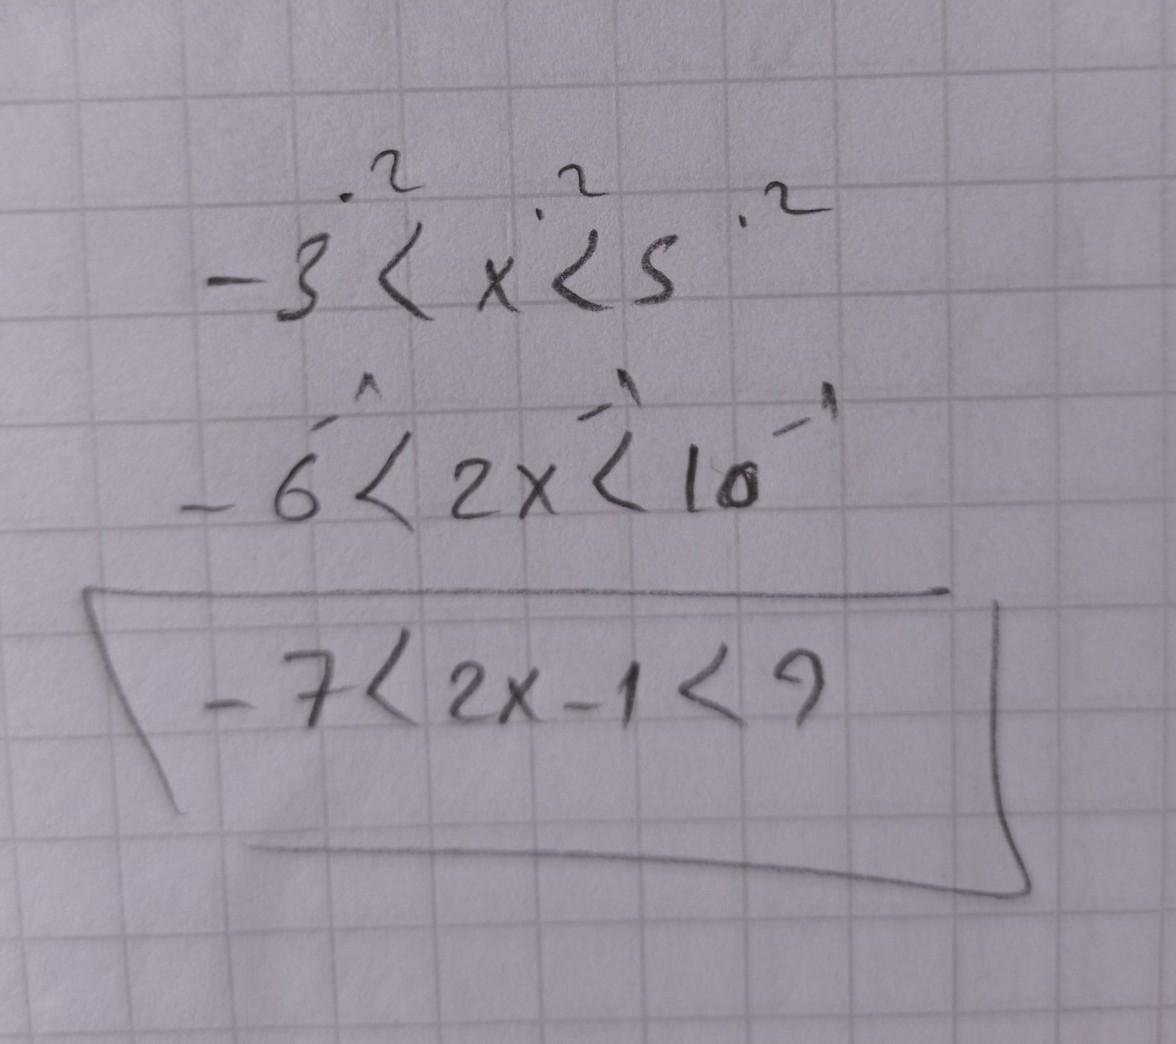 -3 ·2 < x ·2 < 5 ·2
-6 -1 < 2x -1 < 10 -1
-7 < 2x - 1 < 9